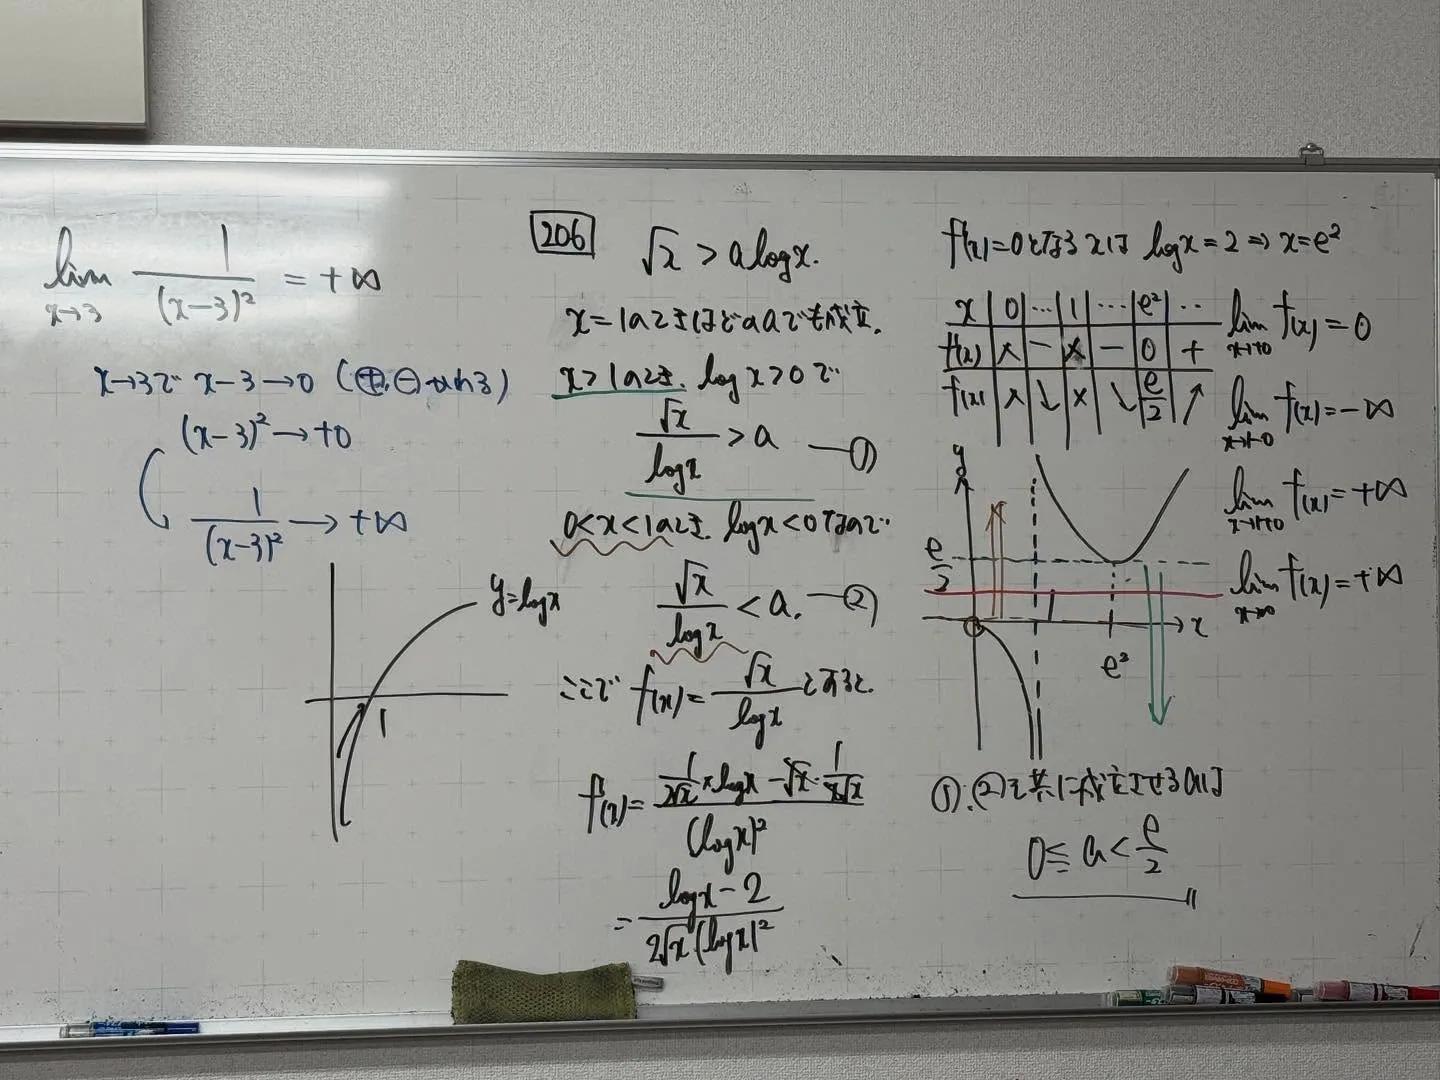 lim x→3 1/(x-3)² = +∞
x→3で x-3→0 (⊕,⊖
(x-3)²→+0
1/(x-3)² → +∞
y=logx
1
206
√x > a log x.
x=1のときはどのaでも成立.
x>1のとき. log x>0で
√x/log x > a —①
0<x<1のとき. log x<0なので
√x/log x < a. —②
ここで f(x)= √x/log x とすると.
f'(x)= (1/2√x × log x - √x · 1/x√x)/(log x)²
= (log x - 2)/(2√x(log x)²
f'(x)=0となるxは log x = 2 ⇒ x=e²
x | 0 | … | 1 | … | e² | ‥
f'(x) | × | - | × | - | 0 | +
f(x) | × | ↓ | × | ↘ | e/2 | ↗
lim x→+0 f(x)=0
lim x→1-0 f(x)=-∞
lim x→1+0 f(x)=+∞
lim x→∞ f(x)=+∞
y
e/2
x
e²
①,②を共に成立させるaは
0≦a<e/2